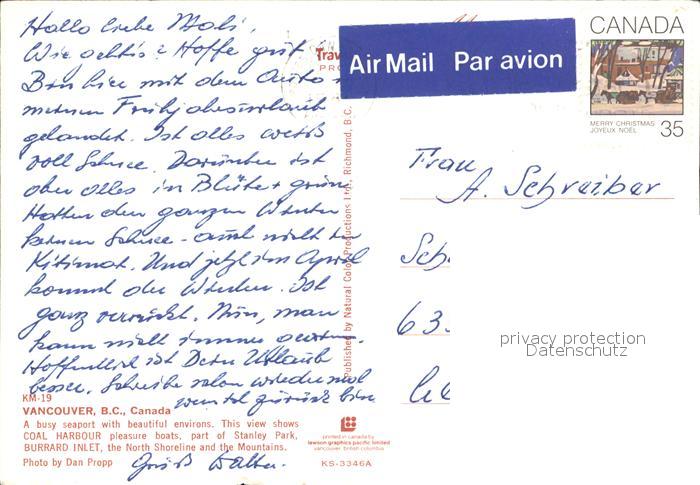 Hallo liebe
Wie gehts? Hoffe gut
Bin hier mit dem Auto
meinen Frühjahrsurlaub
gelandet. Ist alles weiß
voll Schnee. Darunter ist
aber alles in Blüte + grün
Hatten den ganzen Winter
keinen Schnee - auch nicht in
Kitimat. Und jetzt im April
kommt der Winter. Ist
ganz verrückt. Nun, man
kann nicht immer
Hoffentlich ist Dein Urlaub
besser. Schreibe schon wieder mal
wenn ich zurück bin
Gruß Walter.
Air Mail Par avion
CANADA
MERRY CHRISTMAS
JOYEUX NOËL 35
Frau
A. Schreiber
Sch
63
privacy protection
Datenschutz
Published by Natural Color Productions Ltd., Richmond, B.C.
KM-19
VANCOUVER, B.C., Canada
A busy seaport with beautiful environs. This view shows
COAL HARBOUR pleasure boats, part of Stanley Park,
BURRARD INLET, the North Shoreline and the Mountains.
Photo by Dan Propp
printed in canada by
lawson graphics pacific limited
vancouver, british columbia
KS-3346A